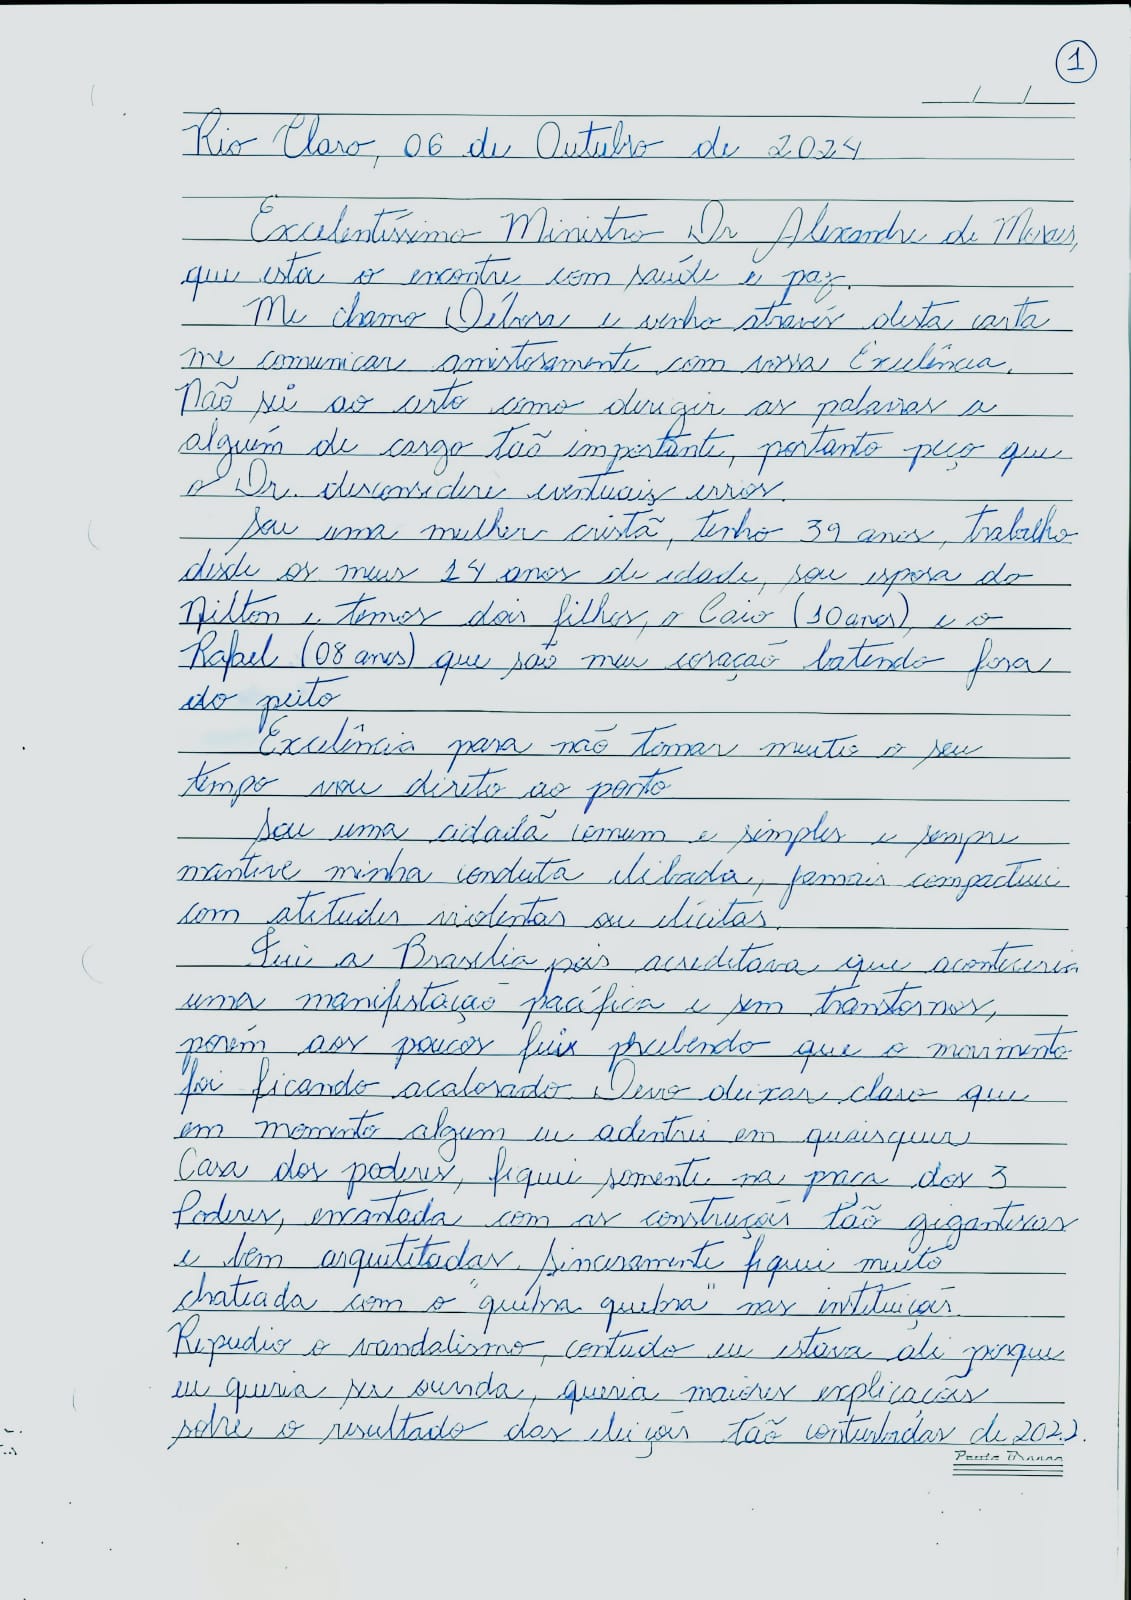 1
Rio Claro, 06 de Outubro de 2024
Excelentíssimo Ministro Dr Alexandre de Moraes,
que esta o encontre com saúde e paz.
Me chamo Débora e venho através desta carta
me comunicar amistosamente com vossa Excelência.
Não sei ao certo como dirigir as palavras a
alguém de cargo tão importante, portanto peço que
o Dr. desconsidere eventuais erros.
Sou uma mulher cristã, tenho 39 anos, trabalho
desde os meus 14 anos de idade, sou esposa do
Nilton e temos dois filhos, o Caio (10 anos) e o
Rafael (08 anos) que são meu coração batendo fora
do peito
Excelência para não tomar muito o seu
tempo vou direto ao ponto
Sou uma cidadã comum e simples e sempre
mantive minha conduta ilibada, jamais compactuei
com atitudes violentas ou ilícitas.
Fui a Brasília pois acreditava que aconteceria
uma manifestação pacífica e sem transtornos,
porém aos poucos fui percebendo que o movimento
foi ficando acalorado. Devo deixar claro que
em momento algum eu adentrei em quaisquer
Casa dos poderes, fiquei somente na praça dos 3
Poderes, encantada com as construções tão gigantescas
e bem arquitetadas. Sinceramente fiquei muito
chateada com o "quebra quebra" nas instituições.
Repudio o vandalismo, contudo eu estava ali porque
eu queria ser ouvida, queria maiores explicações
sobre o resultado das eleições tão conturbadas de 2022.